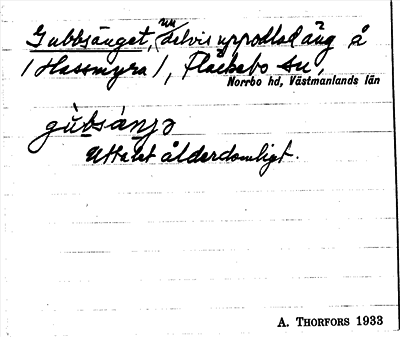 Gubbsänget, nu delvis uppodlad äng å
/Hassmyra/, Fläckebo sn,
Norrbo hd, Västmanlands län
gùbsáŋjə
Uttalet ålderdomligt.
A. THORFORS 1933